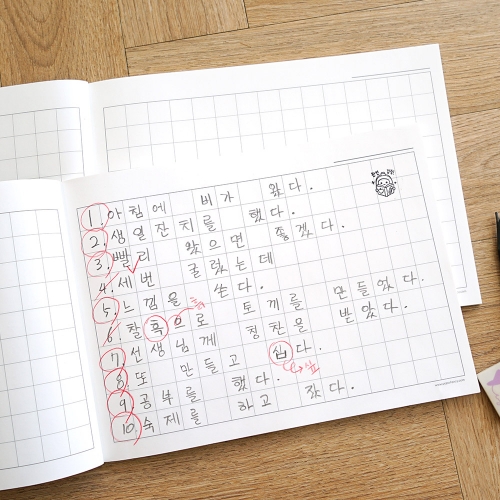 1. 아침에 비가 왔다.
2. 생일잔치를 했다.
3. 빨리 왔으면 좋겠다.
4. 세번 굴렀는데
5. 느낌을 쓴다.
6. 찰흑으로 토끼를 만들었다.
7. 선생님께 칭찬을 받았다.
8. 또 만들고 십다.
싶
9. 공부를 했다.
10. 숙제를 하고 잤다.